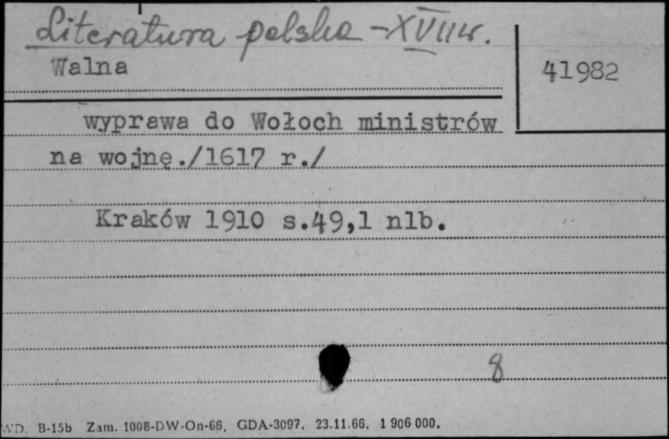 Literatura polska - XVII w.
Walna
41982
wyprawa do Wołoch ministrów
na wojnę./1617 r./
Kraków 1910 s.49,1 nlb.
8
WD. B-15b Zam. 1008-DW-On-66. GDA-3097. 23.11.66. 1 906 000.